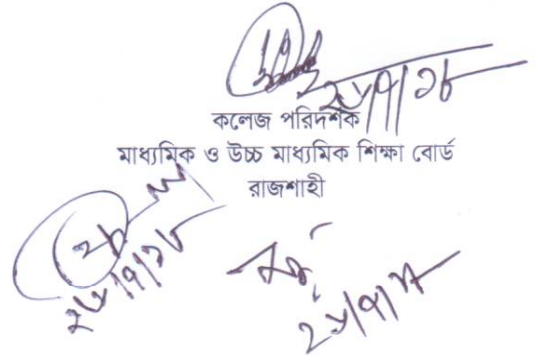 ২৬/৭/১৮
কলেজ পরিদর্শক
মাধ্যমিক ও উচ্চ মাধ্যমিক শিক্ষা বোর্ড
রাজশাহী
২৬/৭/১৮
২৬/৭/১৮